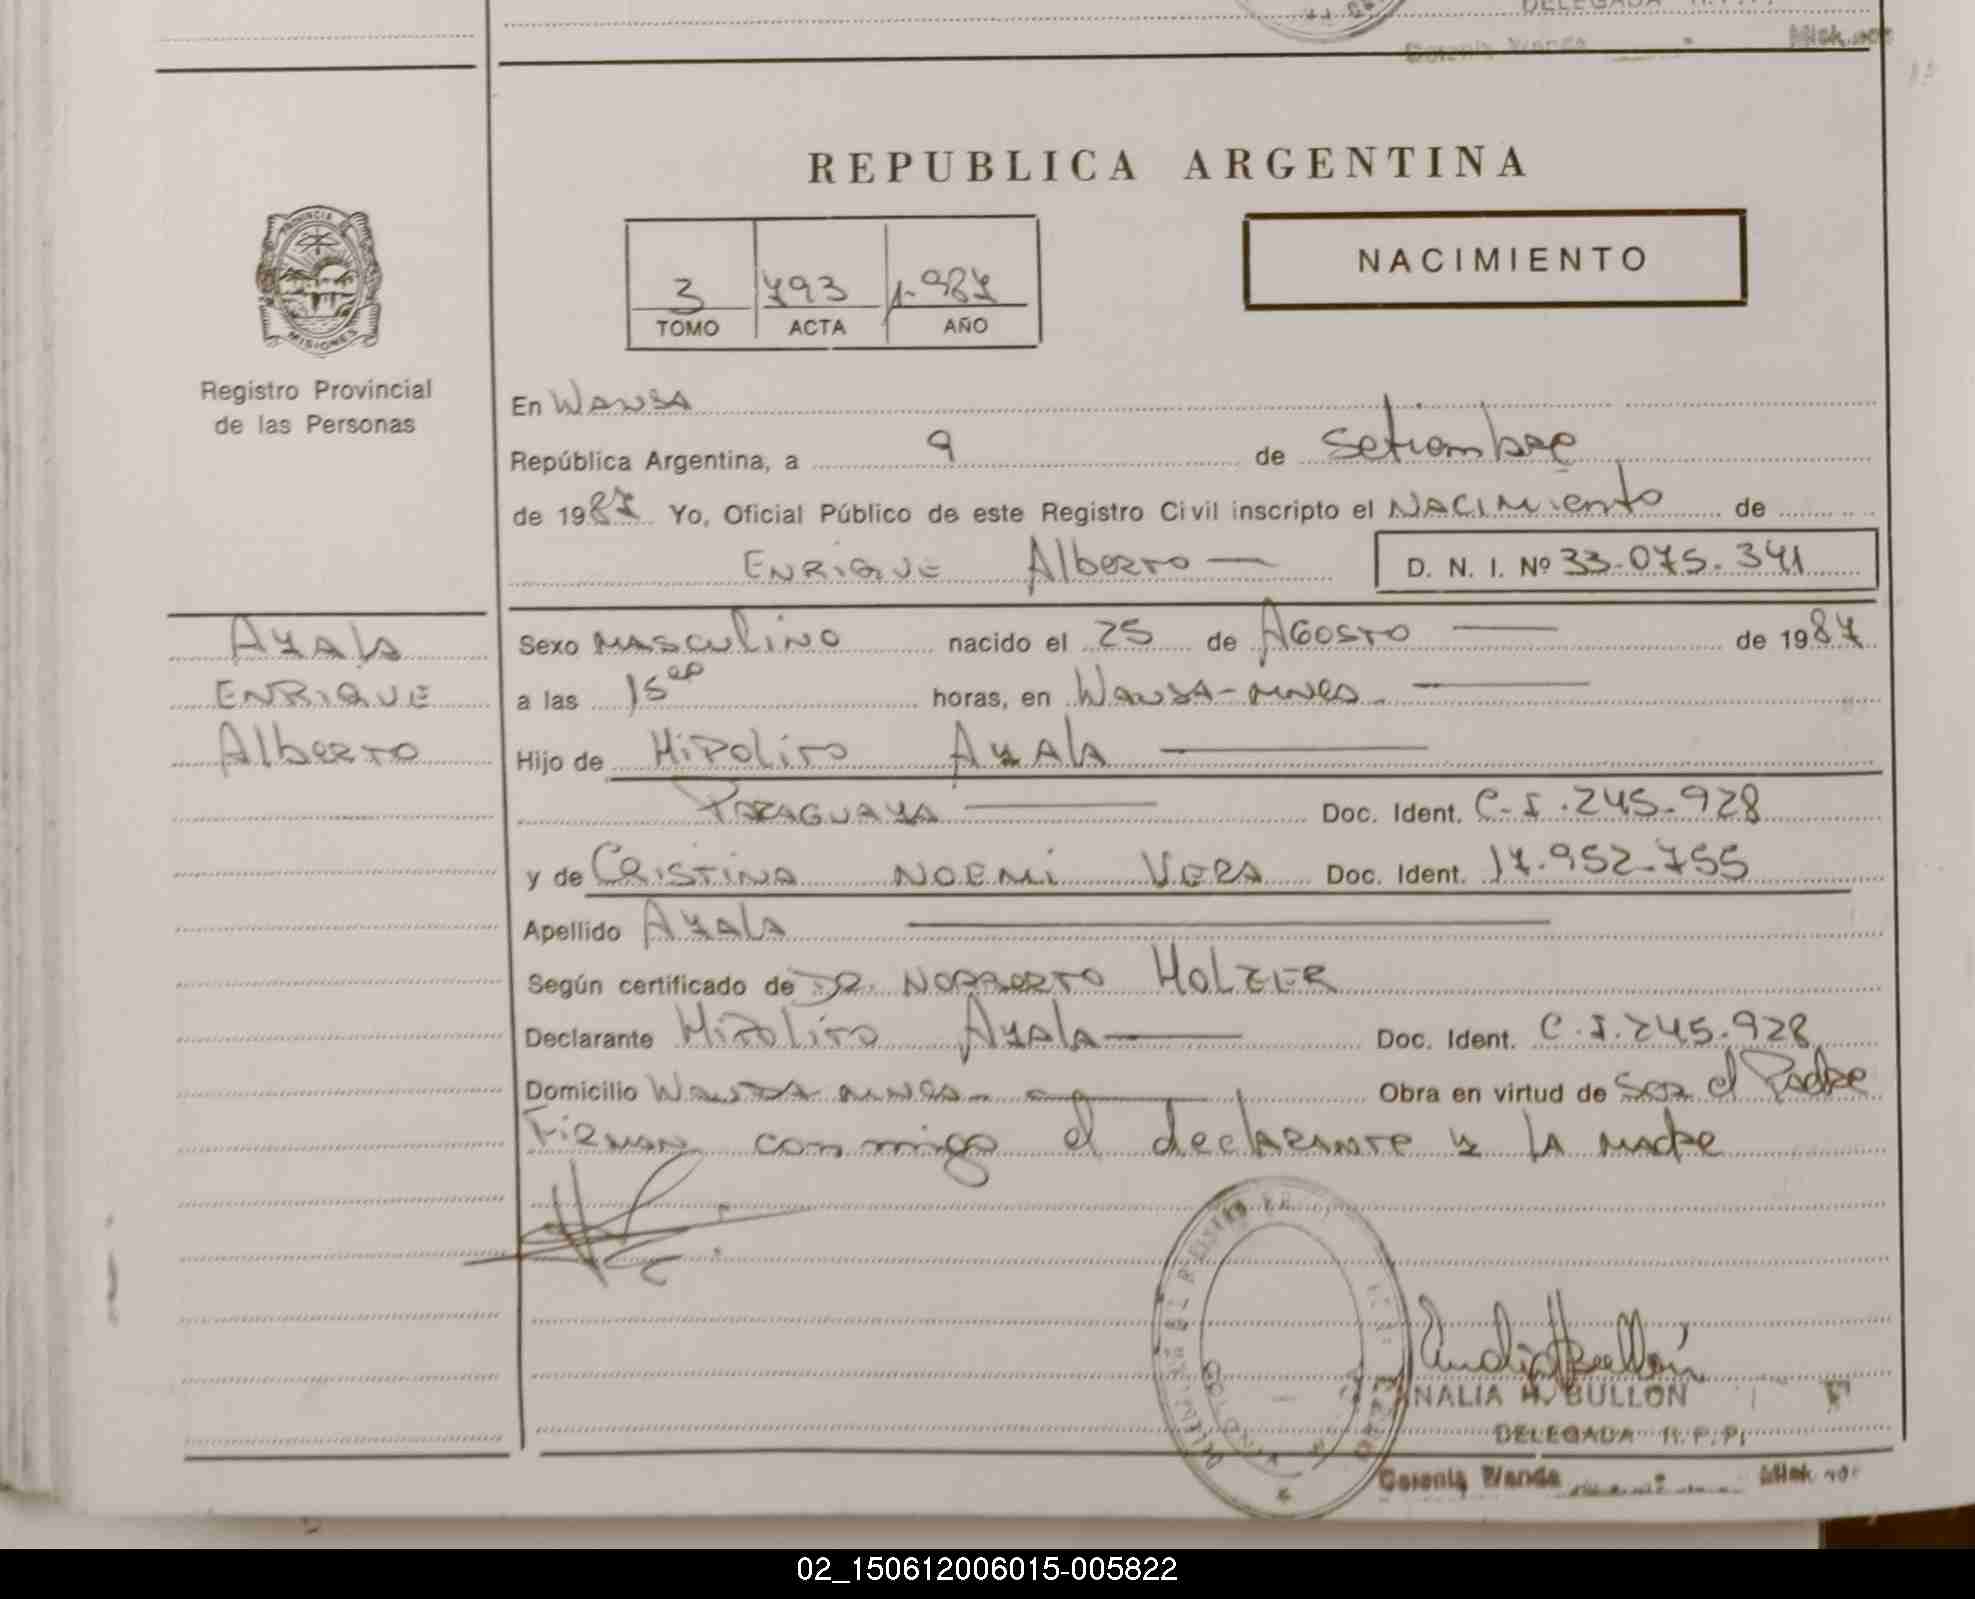 REPUBLICA ARGENTINA
NACIMIENTO
3 793 1.987
TOMO ACTA AÑO
PROVINCIA
MISIONES
Registro Provincial
de las Personas
En WANDA
República Argentina, a 9 de Setiembre
de 1987 Yo, Oficial Público de este Registro Civil inscripto el NACIMiento de
ENRIQUE Alberto — D. N. I. Nº 33.075.341
Ayala
ENRIQUE
Alberto
Sexo MASCULINO nacido el 25 de AGOSTO — de 1987
a las 15 horas, en WANDA-
Hijo de HiPoLito Ayala —
PARAGUAYA — Doc. Ident. C.I.245.928
y de CRISTINA NOEMI VERA Doc. Ident. 17.952.755
Apellido Ayala —
Según certificado de DR. NORBERTO HOLZER
Declarante HiPoLito Ayala — Doc. Ident. C.I.245.928
Domicilio WANDA Obra en virtud de SER el Padre
FiRMAN conmigo el declarante y LA madre
ANALIA H. BULLON
DELEGADA R.P.P.
Colonia Wanda
02_150612006015-005822